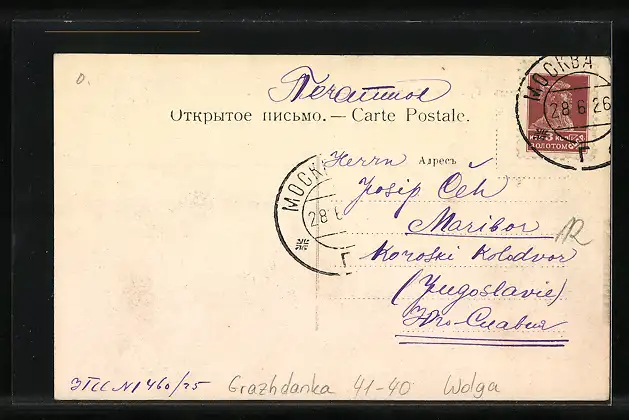 D.
Печатное
Открытое письмо. — Carte Postale.
МОСКВА
28 6 26
Г
3 КОП.
ЗОЛОТОМ
Herrn
Адресъ
Josip Čeh
МОСК
28 6
Г
Maribor
Koroski Kolodvor
(Yugoslavie)
Юго-Славия
N1460/25 Grazhdanka 41-40 Wolga